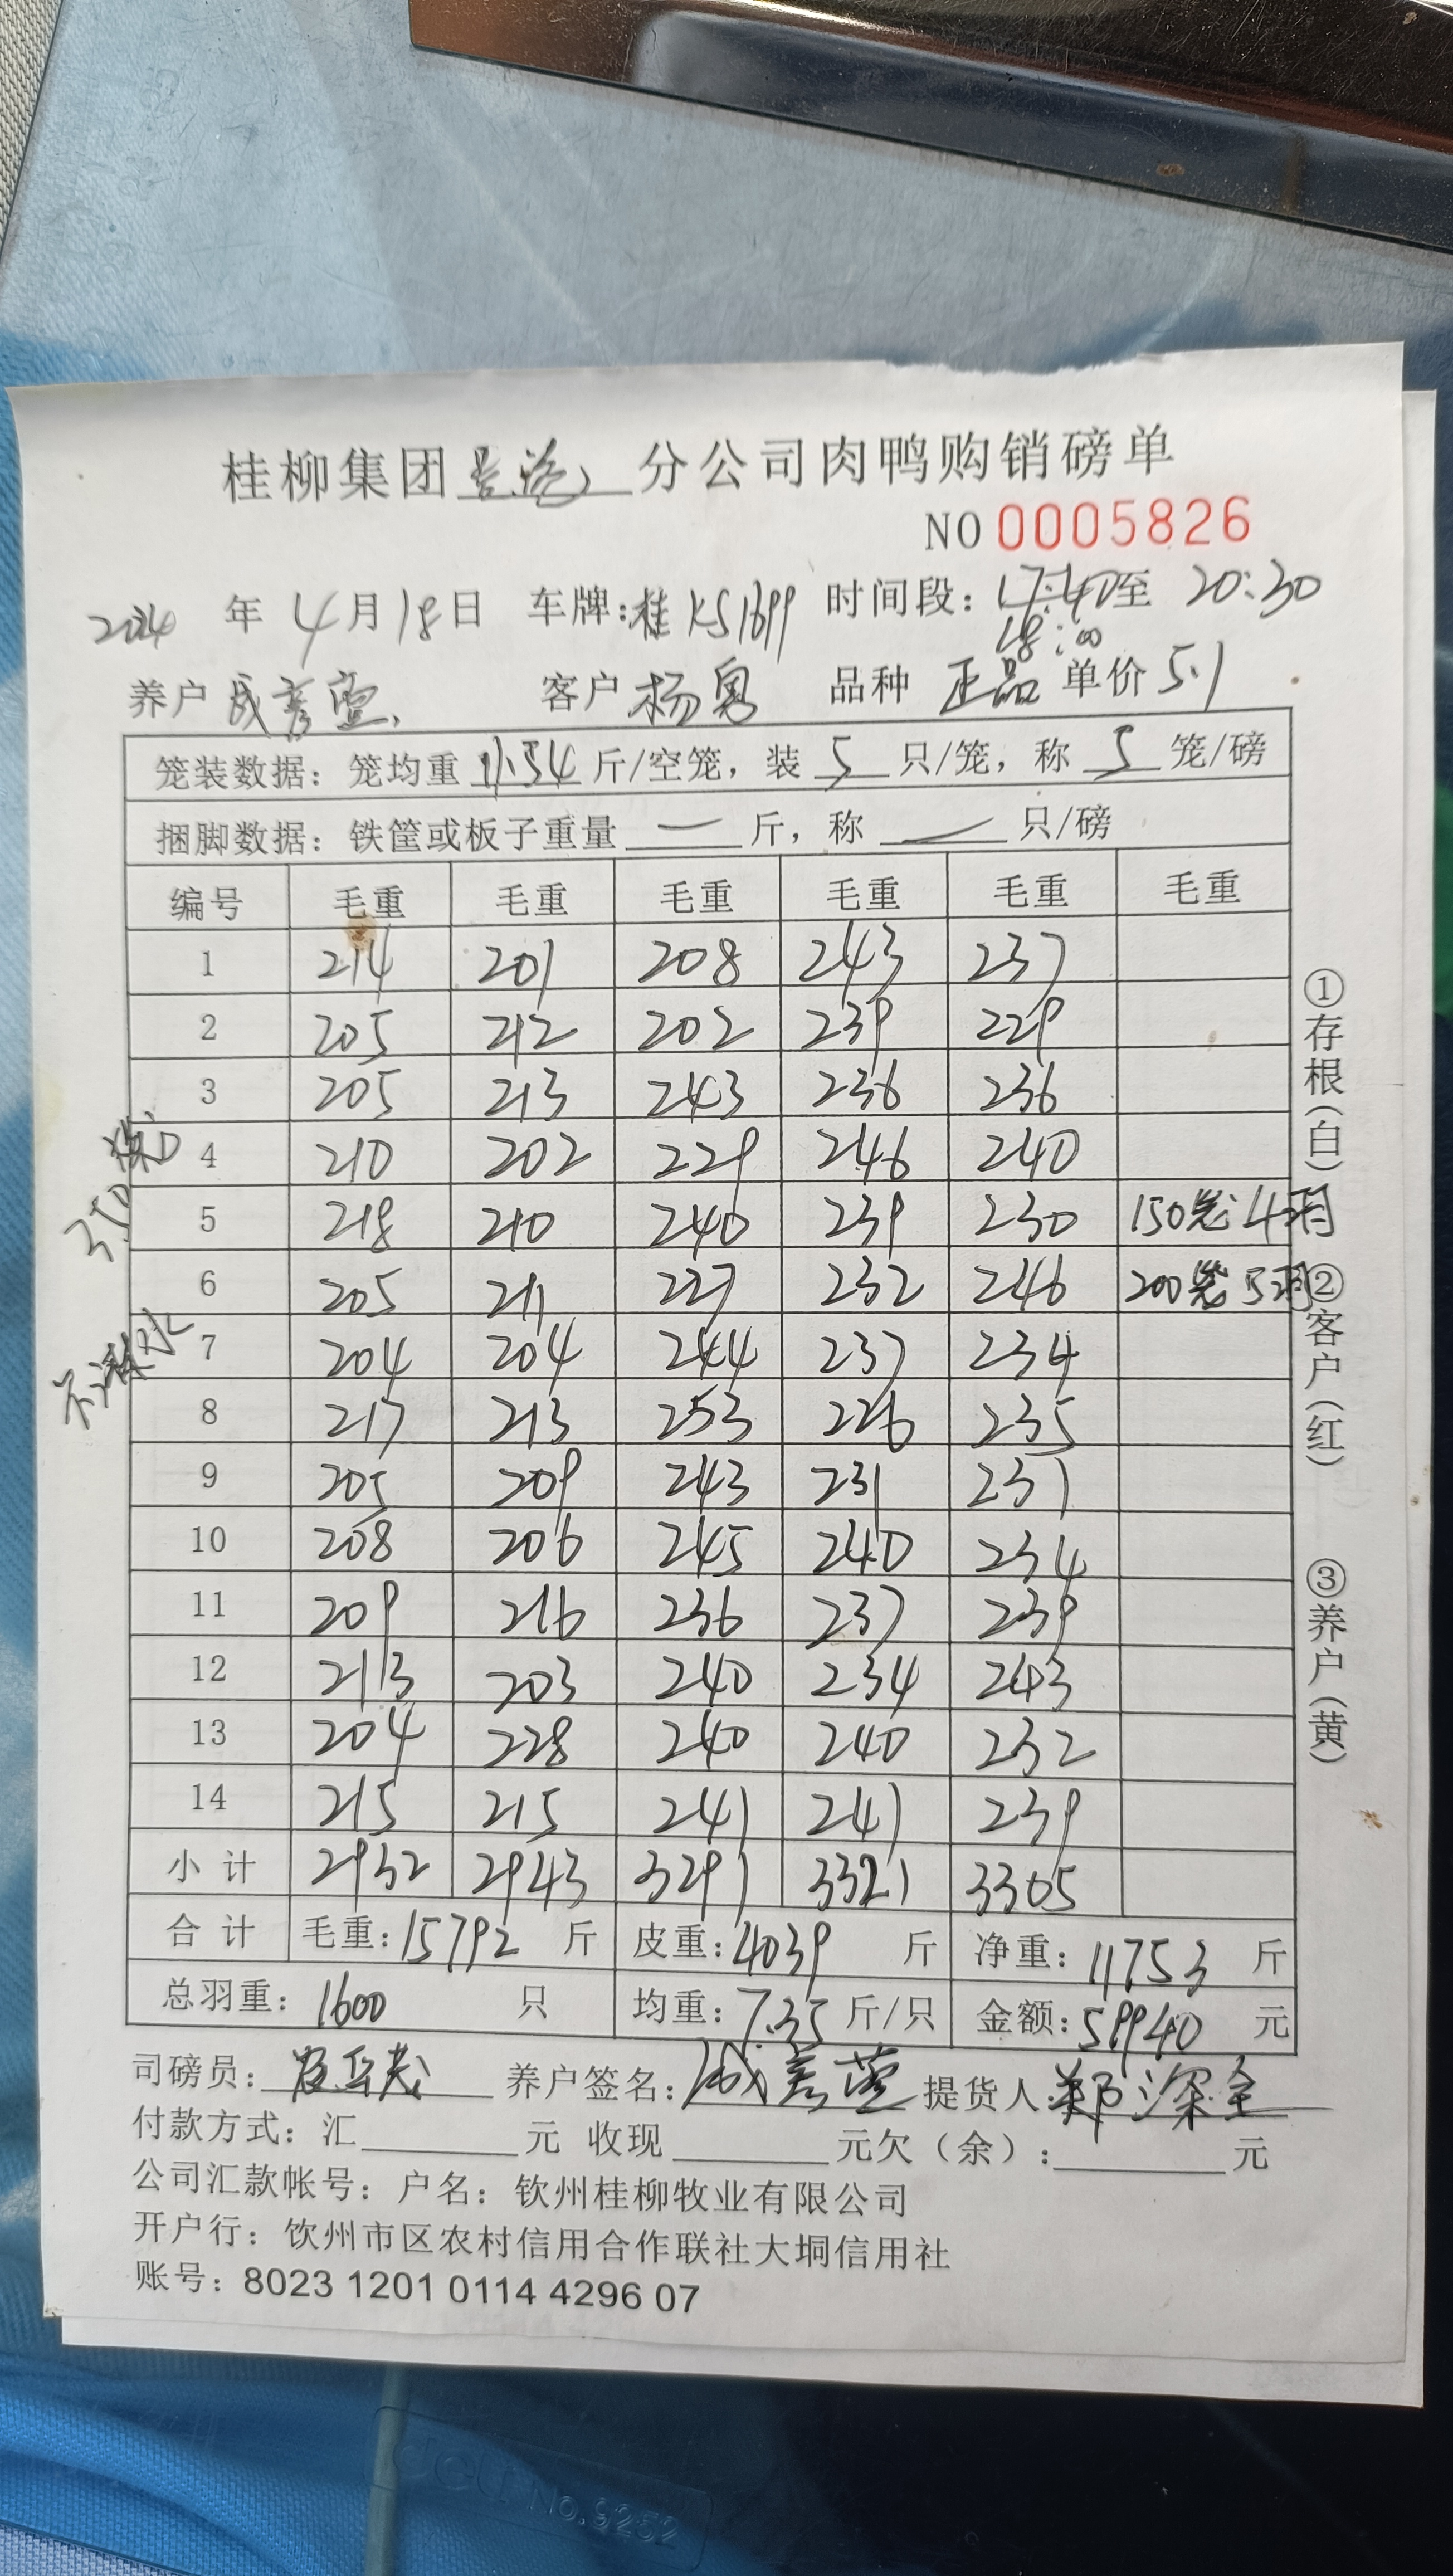 桂柳集团 分公司肉鸭购销磅单
NO 0005826
2024 年 4 月 18 日 车牌：桂KS1699 时间段：17:40至 20:30
18:00
养户 成彦萱 客户 杨勇 品种 正品 单价 5.1
笼装数据：笼均重 11.54 斤/空笼，装 5 只/笼，称 5 笼/磅
捆脚数据：铁筐或板子重量 — 斤，称 — 只/磅
编号 毛重 毛重 毛重 毛重 毛重 毛重
1 214 201 208 243 237
2 205 212 202 239 229
3 205 213 243 236 236
4 210 202 229 246 240
5 218 210 240 239 230 150笼4羽
6 205 211 227 232 246 200笼5羽
7 204 204 244 237 234
8 217 213 253 226 235
9 205 209 243 231 231
10 208 206 245 240 234
11 209 216 236 237 239
12 213 203 240 234 243
13 204 228 240 240 232
14 215 215 241 241 239
小计 2932 2943 3291 3321 3305
合计 毛重：15792 斤 皮重：4039 斤 净重：11753 斤
总羽重：1600 只 均重：7.35 斤/只 金额：59940 元
司磅员： 养户签名：成彦萱 提货人：郑深全
付款方式：汇 元 收现 元欠（余）： 元
公司汇款帐号：户名：钦州桂柳牧业有限公司
开户行：饮州市区农村信用合作联社大垌信用社
账号：8023 1201 0114 4296 07
350笼
不淋水
①存根（白） ②客户（红） ③养户（黄）
deli No.9252